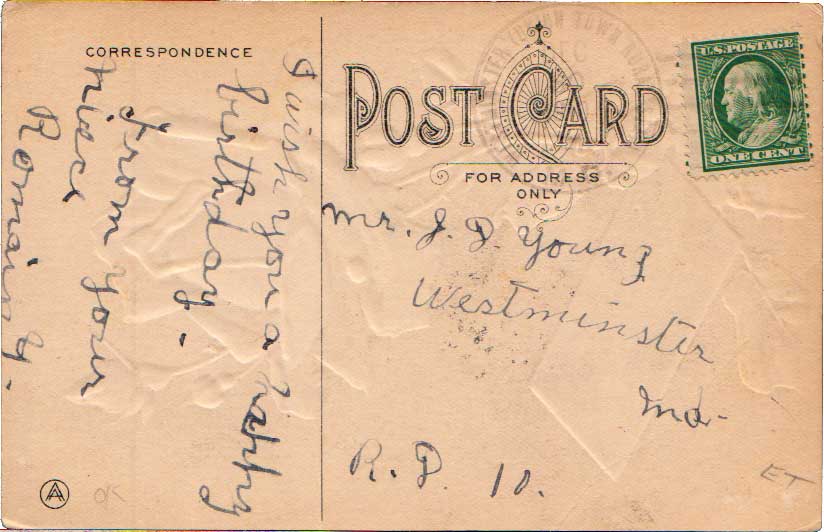 CORRESPONDENCE
I wish you a happy
birthday.
from your
niece
POST CARD
FOR ADDRESS
ONLY
U.S. POSTAGE
ONE CENT
Mr. J. D. Young
Westminster
Md.
R. D. 10.
AA
OK
ET